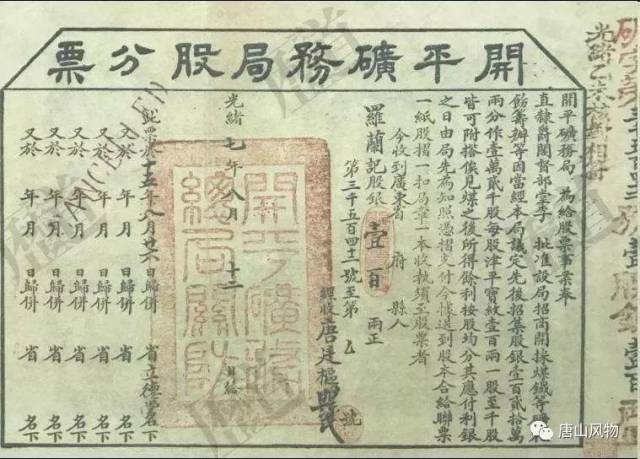 開平礦務局股分票
開平礦務局 為給股票事案奉
直隸爵閣督部堂李 批准設局招商開採煤鐵等礦
飭籌辦等因當經本局議定先後招集股銀壹百貳拾萬
兩分作壹萬貳千股每股津平寶紋壹百兩一股至千股
皆可附搭俟見煤之後所得餘利按股均分其應付利銀
之日由局先為知照憑摺支付今據送到股本合給聯票
一紙股摺一扣局章一本收執須至股票者
今收到廣東省 府 縣人
羅蘭記股銀壹百 兩正
第三千五百四十一號至第 號
經收唐廷樞
光緒七年八月十二日給
開平礦務總局關防
此票於十五年八月廿六日歸併 省立德堂名下
又於 年 月 日歸併 省 名下
又於 年 月 日歸併 省 名下
又於 年 月 日歸併 省 名下
又於 年 月 日歸併 省 名下
又於 年 月 日歸併 省 名下
CANCELLED
唐山风物